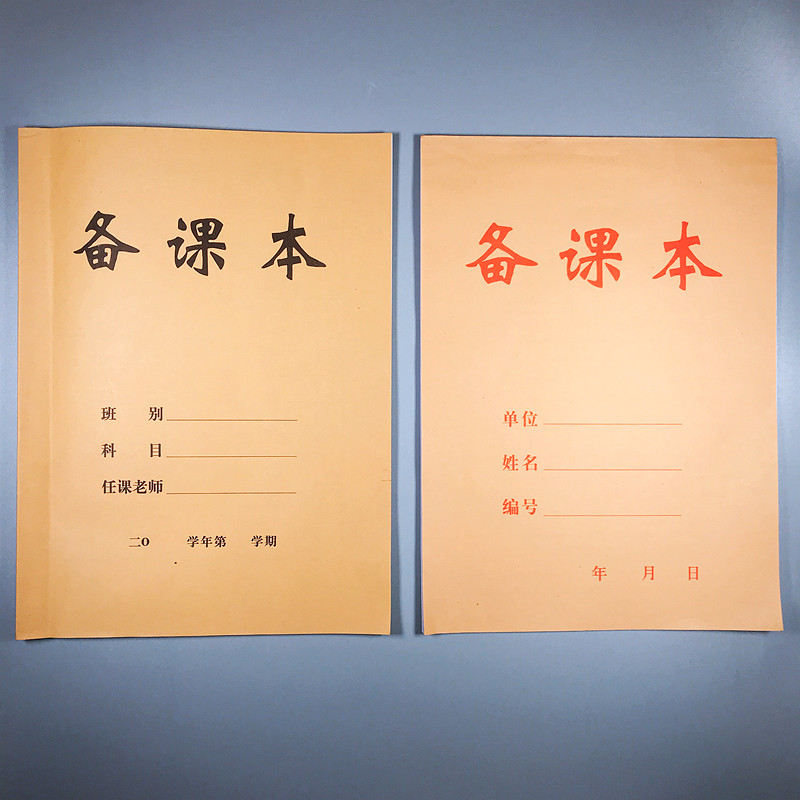 备课本
班别
科目
任课老师
二O 学年第 学期
备课本
单位
姓名
编号
年 月 日